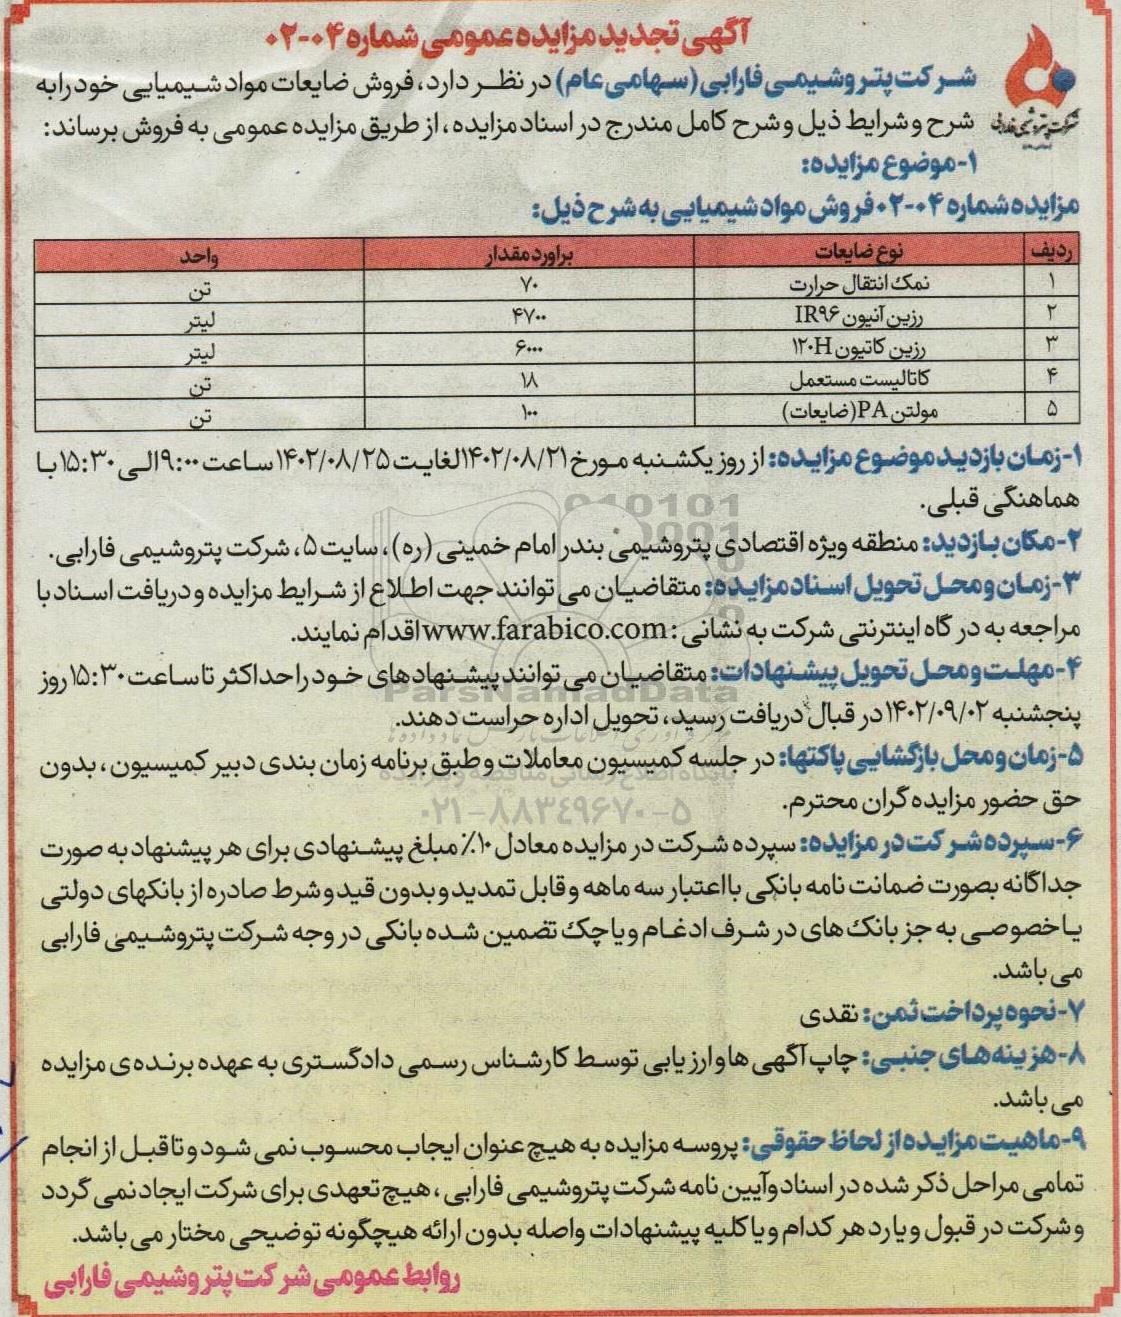 آگهی تجدید مزایده عمومی شماره ۰۴-۰۲
شرکت پتروشیمی فارابی (سهامی عام) در نظر دارد، فروش ضایعات مواد شیمیایی خود را به
شرح و شرایط ذیل و شرح کامل مندرج در اسناد مزایده، از طریق مزایده عمومی به فروش برساند:
شرکت پتروشیمی فارابی
۱-موضوع مزایده:
مزایده شماره ۰۴-۰۲ فروش مواد شیمیایی به شرح ذیل:
ردیف نوع ضایعات براورد مقدار واحد
۱ نمک انتقال حرارت ۷۰ تن
۲ رزین آنیون IR۹۶ ۴۷۰۰ لیتر
۳ رزین کاتیون ۱۲۰H ۶۰۰۰ لیتر
۴ کاتالیست مستعمل ۱۸ تن
۵ مولتن PA (ضایعات) ۱۰۰ تن
۱-زمان بازدید موضوع مزایده: از روز یکشنبه مورخ ۱۴۰۲/۰۸/۲۱ لغایت ۱۴۰۲/۰۸/۲۵ ساعت ۹:۰۰ الی ۱۵:۳۰ با
هماهنگی قبلی.
۲-مکان بازدید: منطقه ویژه اقتصادی پتروشیمی بندر امام خمینی (ره)، سایت ۵، شرکت پتروشیمی فارابی.
۳-زمان و محل تحویل اسناد مزایده: متقاضیان می توانند جهت اطلاع از شرایط مزایده و دریافت اسناد با
مراجعه به درگاه اینترنتی شرکت به نشانی: www.farabico.com اقدام نمایند.
۴-مهلت و محل تحویل پیشنهادات: متقاضیان می توانند پیشنهادهای خود را حداکثر تا ساعت ۱۵:۳۰ روز
پنجشنبه ۱۴۰۲/۰۹/۰۲ در قبال دریافت رسید، تحویل اداره حراست دهند.
۵-زمان و محل بازگشایی پاکتها: در جلسه کمیسیون معاملات و طبق برنامه زمان بندی دبیر کمیسیون، بدون
حق حضور مزایده گران محترم.
۶-سپرده شرکت در مزایده: سپرده شرکت در مزایده معادل ۱۰٪ مبلغ پیشنهادی برای هر پیشنهاد به صورت
جداگانه بصورت ضمانت نامه بانکی با اعتبار سه ماهه و قابل تمدید و بدون قید و شرط صادره از بانکهای دولتی
یا خصوصی به جز بانک های در شرف ادغام و یا چک تضمین شده بانکی در وجه شرکت پتروشیمی فارابی
می باشد.
۷-نحوه پرداخت ثمن: نقدی
۸-هزینه های جنبی: چاپ آگهی ها و ارزیابی توسط کارشناس رسمی دادگستری به عهده برنده ی مزایده
می باشد.
۹-ماهیت مزایده از لحاظ حقوقی: پروسه مزایده به هیچ عنوان ایجاب محسوب نمی شود و تا قبل از انجام
تمامی مراحل ذکر شده در اسناد و آیین نامه شرکت پتروشیمی فارابی، هیچ تعهدی برای شرکت ایجاد نمی گردد
و شرکت در قبول و یا رد هر کدام و یا کلیه پیشنهادات واصله بدون ارائه هیچگونه توضیحی مختار می باشد.
روابط عمومی شرکت پتروشیمی فارابی
ParsNamadData
پایگاه اطلاع رسانی مناقصه و مزایده
۰۲۱-۸۸۳۴۹۶۷۰-۵